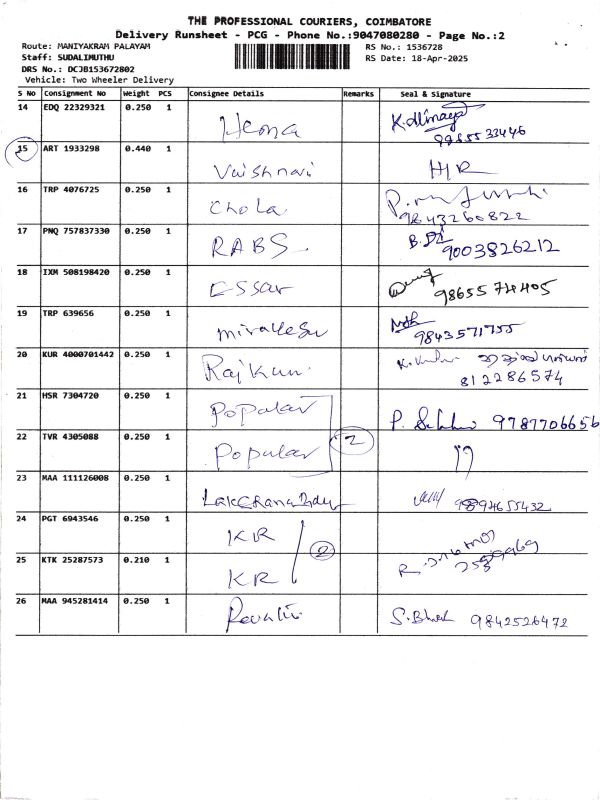 THE PROFESSIONAL COURIERS, COIMBATORE
Delivery Runsheet - PCG - Phone No.:9047080280 - Page No.:2
Route: MANIYAKRAM PALAYAM
RS No.: 1536728
Staff: SUDALIMUTHU
RS Date: 18-Apr-2025
DRS No.: DCJB153672802
Vehicle: Two Wheeler Delivery
S No Consignment No Weight PCS Consignee Details Remarks Seal & Signature
14 EDQ 22329321 0.250 1 Hema
9965533446
15 ART 1933298 0.440 1 Vaishnavi H/R
16 TRP 4076725 0.250 1 Chola
9843260822
17 PNQ 757837330 0.250 1 RABS 9003826212
18 IXM 508198420 0.250 1 Essar 9865574405
19 TRP 639656 0.250 1 9843571755
20 KUR 4000701442 0.250 1 Rajkum
812286574
21 HSR 7304720 0.250 1 Popular 9787706656
2
22 TVR 4305088 0.250 1 Popular
23 MAA 111126008 0.250 1 9894655432
24 PGT 6943546 0.250 1 KR
2
25 KTK 25287573 0.210 1 KR
26 MAA 945281414 0.250 1 Revathi 9842526472